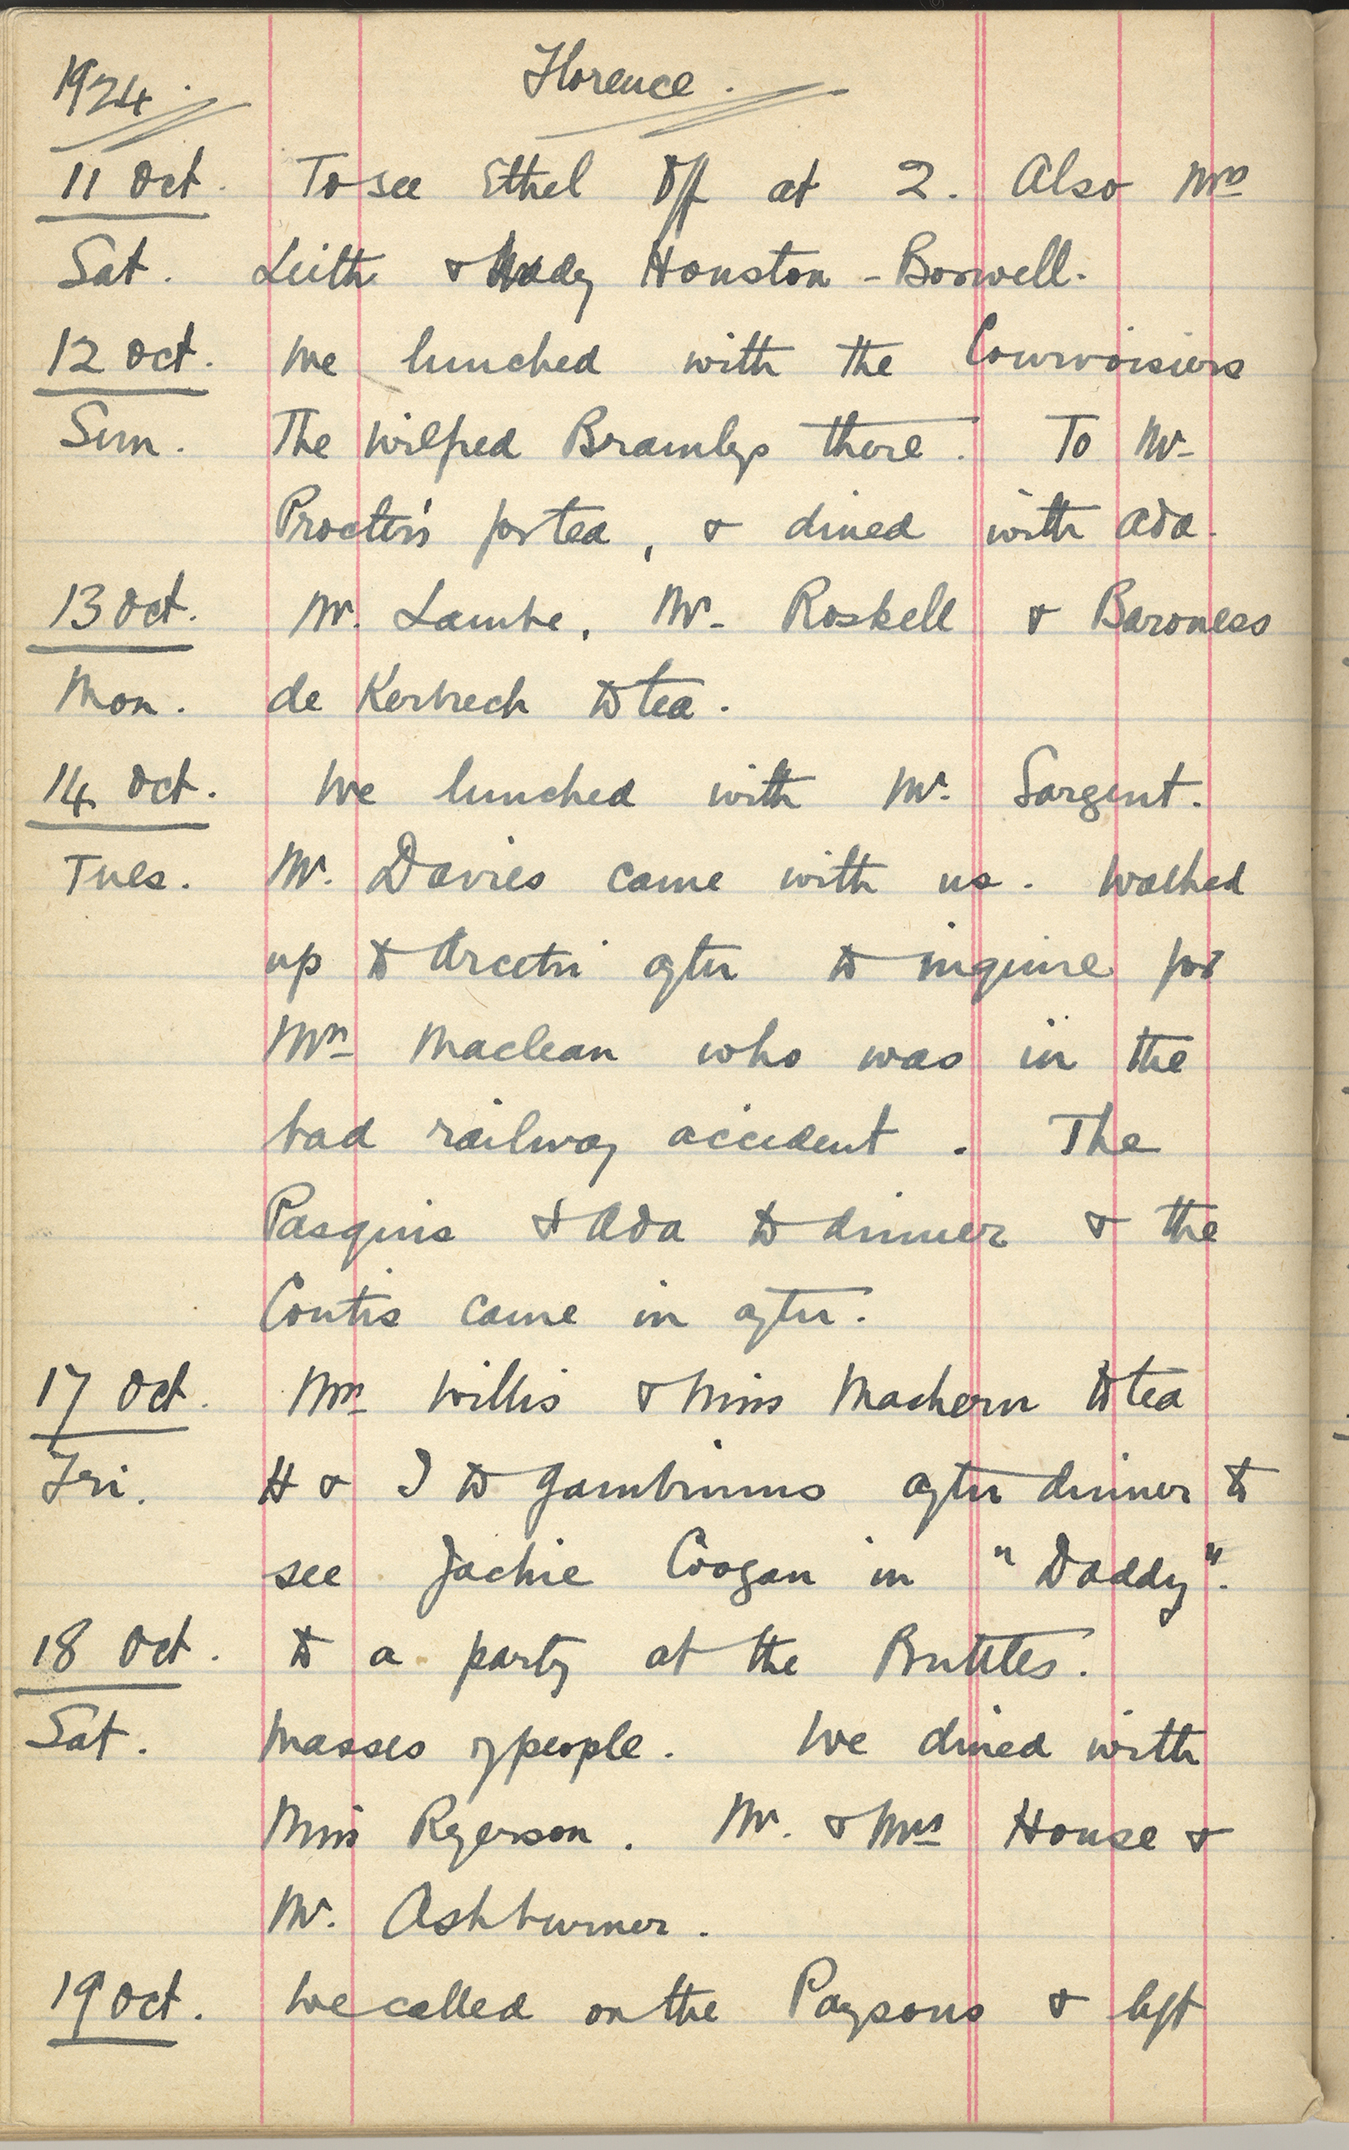 1924. Florence.
11 Oct. To see Ethel off at 2. Also Mrs
Sat. Leith & Lady Houston-Boswell.
12 Oct. We lunched with the Courvoisiers
Sun. The Wilfred Bramleys there. To Mr
Procter's for tea, & dined with Ada.
13 Oct. Mr. Lambe, Mr. Roskell & Baroness
Mon. de Kerbrech to tea.
14 Oct. We lunched with Mr. Sargent.
Tues. Mr. Davies came with us. Walked
up to Arcetri after to inquire for
Mrs Maclean who was in the
bad railway accident. The
Pasquis & Ada to dinner & the
Contis came in after.
17 Oct. Mrs Willis & Miss to tea
Fri. H & I to Gambrinus after dinner to
see Jackie Coogan in "Daddy".
18 Oct. to a party at the
Sat. Masses of people. We dined with
Miss Ryerson. Mr. & Mrs House &
Mr. Ashburner.
19 Oct. We called on the Paysons & left